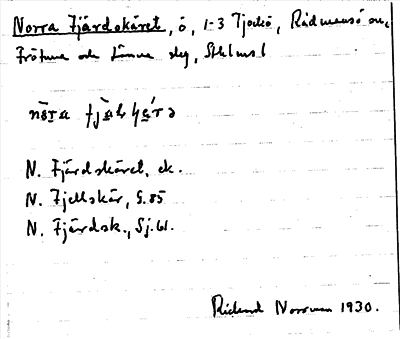 Norra Fjärdskäret, ö, 1-3 Tjockö, Rådmansö sn,
Frötuna och Länna slg, Sthlms l
nòra fjàlʃǽrə
N. Fjärdskäret, ek.
N. Fjellskär, G.85
N. Fjärdsk., Sj.61.
Rickard Norrman 1930.